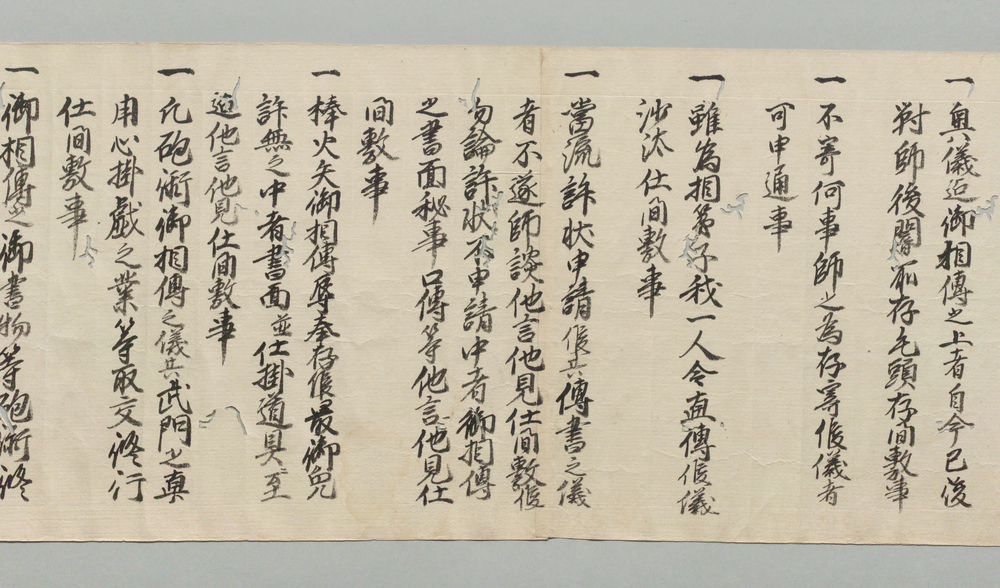 一 奥儀迄御相傳之上者自今已後
對師後闇所存毛頭存間敷事
一 不寄何事師之為存寄候儀者
可申通事
一 雖為相弟子我一人令直傳候儀
沙汰仕間敷事
一 當流許状申請候共傳書之儀
者不遂師談他言他見仕間敷候
勿論許状不申請中者御相傳
之書面秘事口傳等他言他見仕
間敷事
一 棒火矢御相傳辱奉存候最御免
許無之中者書面並仕掛道具至
迄他言他見仕間敷事
一 凢砲術御相傳之儀共武門之真
用心掛戯之業等取交修行
仕間敷事
一 御相傳之御書物等砲術修